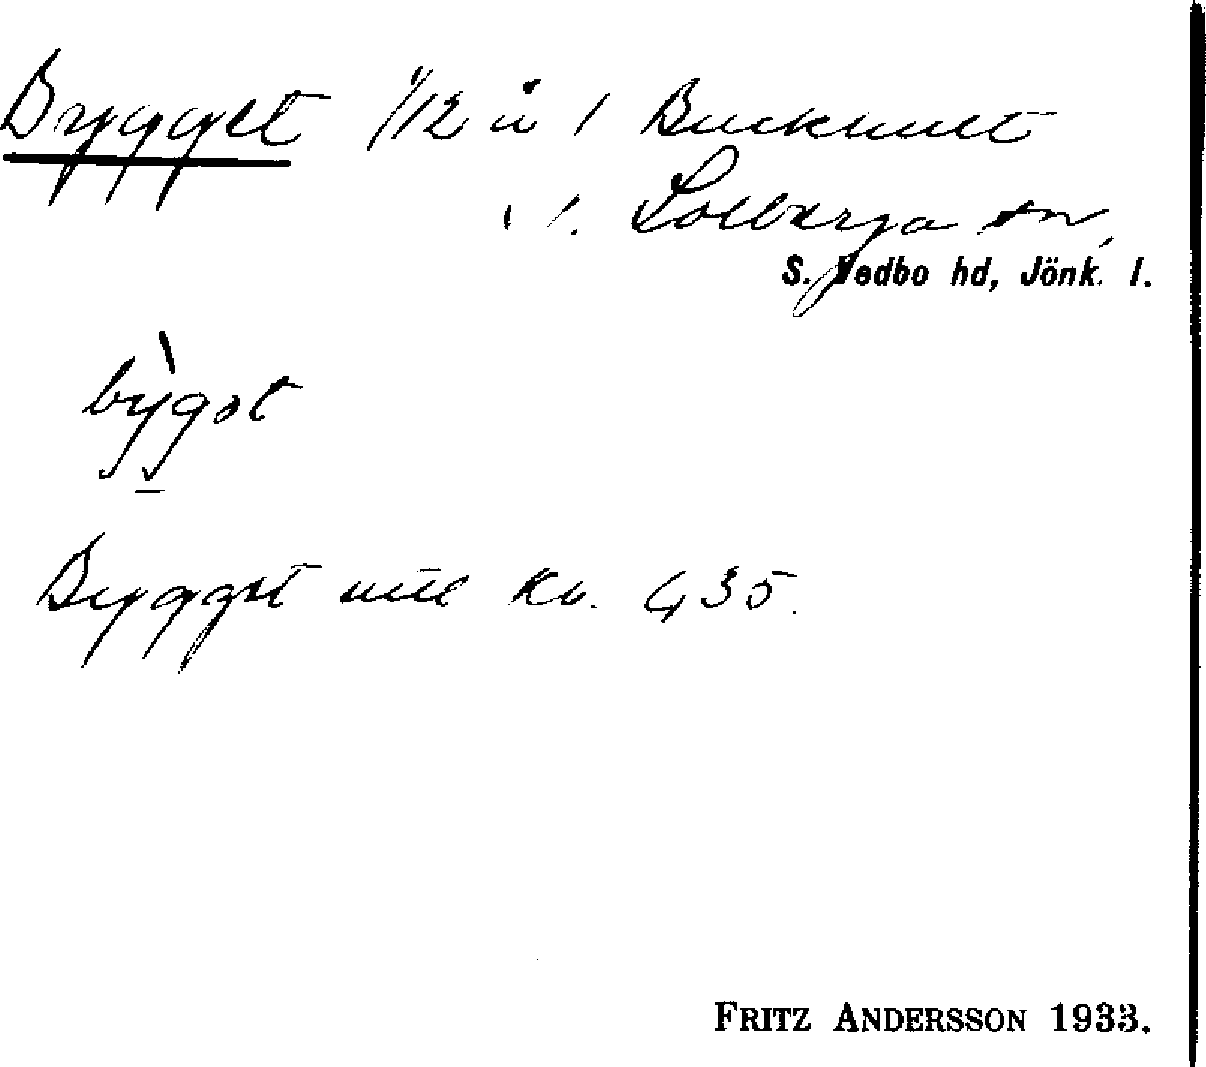 Bygget 1/12 å 1 Buckhult
i Solberga sn,
S. Vedbo hd, Jönk. l.
bygət
Bygget mtl kv. 435.
FRITZ ANDERSSON 1933.